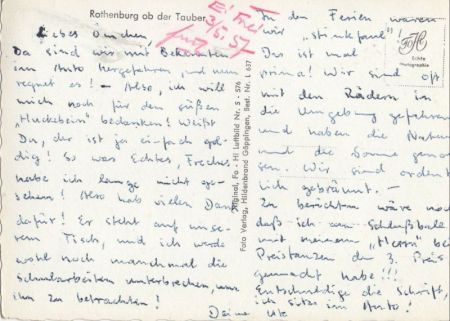 Rothenburg ob der Tauber
Liebes Omchen!
Da sind wir mit Bekannten
im Auto hergefahren, und nun
regnet es! – Also, ich will
mich noch für den süßen
„Huckebein" bedanken! Weißt
Du, der ist ja einfach gol-
dig! So was Echtes, Freches
habe ich lange nicht ge-
sehen! Also hab vielen Dank
dafür! Er steht auf unse-
rem Tisch, und ich werde
wohl noch manchmal die
Schularbeiten unterbrechen, um
ihn zu betrachten!
Deine Ute
Original, Fo - Hi Luftbild Nr. S - 576
Foto Verlag, Hildenbrand Göppingen, Best. Nr. L 637
In den Ferien waren
wir „stinkfaul"!
Das ist mal
prima! Wir sind oft
mit den Rädern in
die Umgebung gefahren
und haben die Natur
und die Sonne genos-
sen. Wir sind ordent-
lich gebräunt. –
Zu berichten wäre noch
daß ich am Schlußball
mit meinem „Herrn" beim
Preistanzen den 3. Preis
gemacht habe!!!
Entschuldige die Schrift,
ich sitze im Auto!
Echte
Photographie